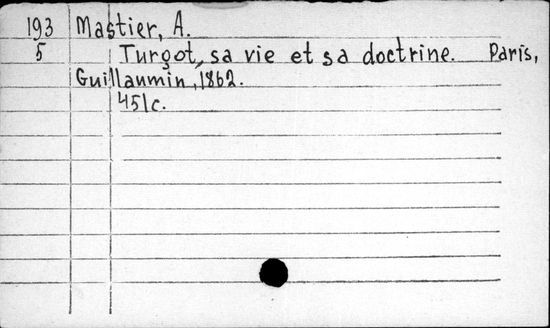 193 Mastier, A.
5 Turgot, sa vie et sa doctrine. Paris,
Guillaumin, 1862.
451c.